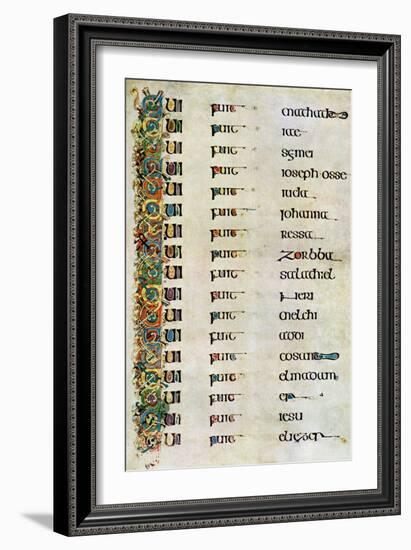 Qui fuit
Qui fuit
Qui fuit semei
Qui fuit ioseph osse
Qui fuit iuda
Qui fuit iohanna
Qui fuit ressa
Qui fuit zorbba
Qui fuit salathiel
Qui fuit neri
Qui fuit melchi
Qui fuit addi
Qui fuit cosam
Qui fuit elmadam
Qui fuit er
Qui fuit iesu
Qui fuit eliezer